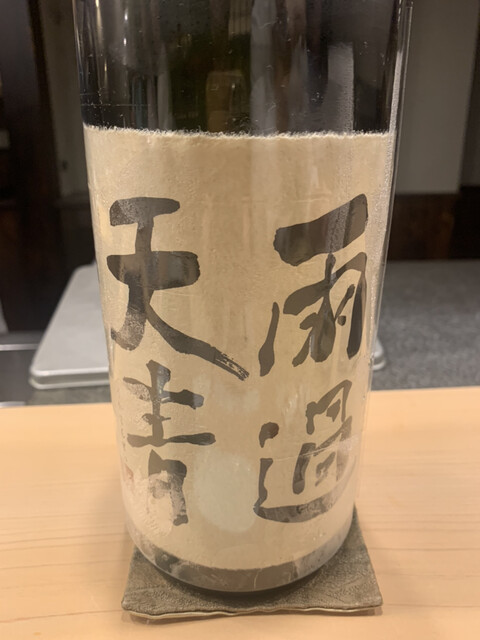 雨過
天青